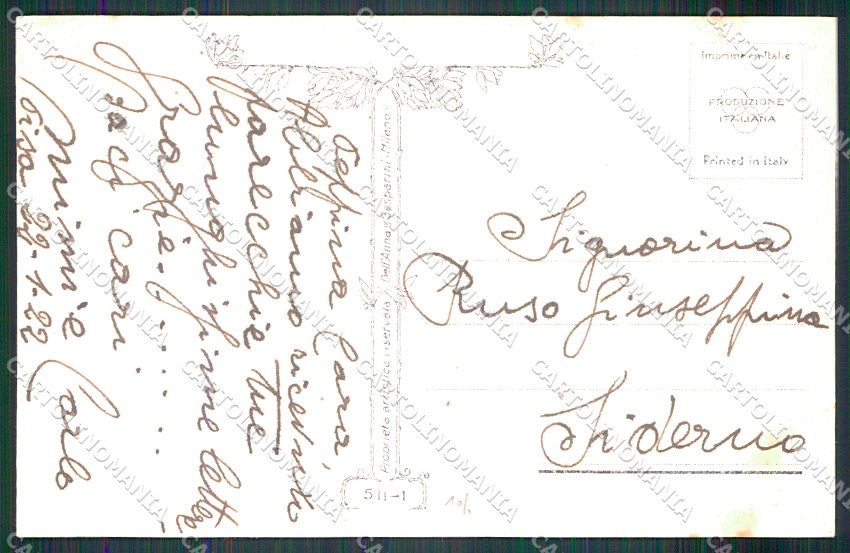 Peppina Cara
Abbiamo ricevuto
parecchie tue
lunghissime lettere
Grazie. . . . . .
Baci cari
Mimì e Carlo
Pisa 29-1-22
Proprietà artistica riservata Dell'Anna & Gasparini - Milano
511-1
Imprimé en Italie
PRODUZIONE
ITALIANA
Printed in Italy
Signorina
Ruso Giuseppina
Siderno
CARTOLINOMANIA